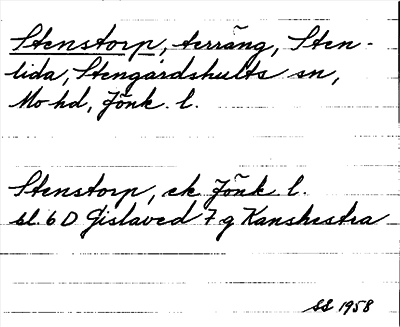 Stenstorp, terräng, Sten-
lida, Stengårdshults sn,
Mo hd, Jönk. l.
Stenstorp, ek Jönk l.
bl. 6 D Gislaved 7 g Kanshestra
SS 1958